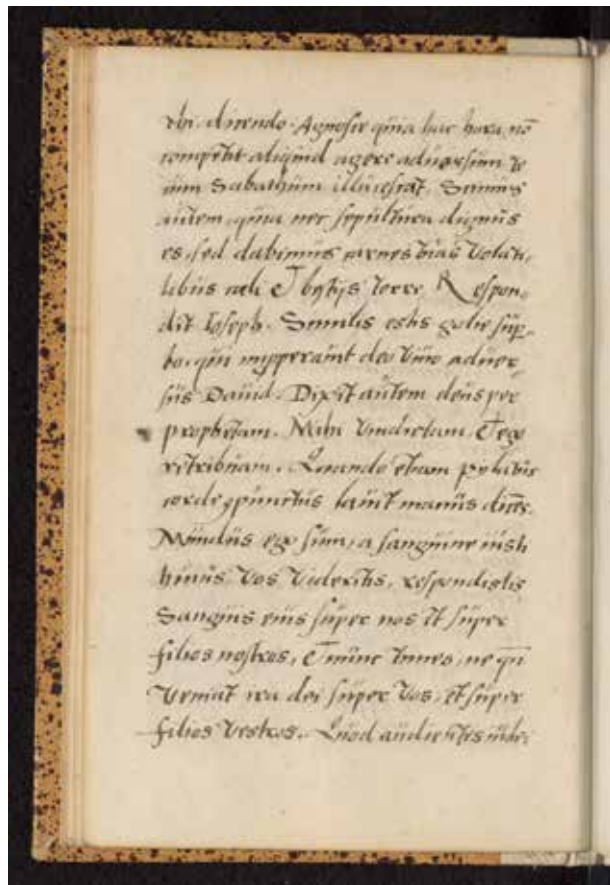 tibi. dicendo. Agnosce quia hac hora nō
competit aliquid agere aduersum te
cum Sabathum illucescat. Scimus
autem, quia nec sepultura dignus
es, sed dabimus carnes tuas Volati,
libus celi & bestijs terre. Respon,
dit Ioseph. Similis estis golie sup,
bo. qui impperauit deo viuo aduer
sus Dauid. Dixit autem deus per
prophetam. Mihi Vindictam. & ego
retribuam. Quando etiam pylatus
corde ꝯpunctus lauit manus dicēs.
Mundus ego sum, a sanguine iusti
huius. Vos Videritis, respondistis
Sanguis eius super nos et super
filios nostros, & nunc timeo, ne qn̄
Veniat ira dei super Vos, et super
filios Vestros. Quod audientes iude,